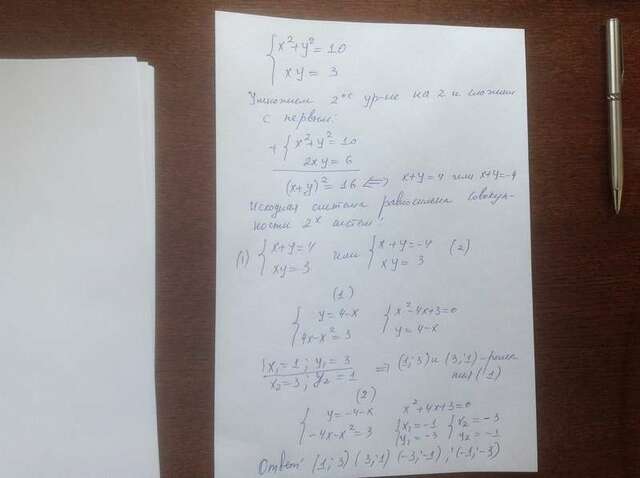 x²+y²=10
xy=3
Умножим 2ое ур-ие на 2 и сложим
с первым:
+ x²+y²=10
2xy=6
(x+y)²=16 <=> x+y=4 или x+y=-4
Исходная система равносильна совокуп-
ности 2х систем:
(1) { x+y=4 или { x+y=-4 (2)
xy=3 xy=3
(1)
y=4-x x²-4x+3=0
4x-x²=3 y=4-x
x₁=1; y₁=3
x₂=3; y₂=1 => (1;3) и (3;1) - реше
ния (1)
(2)
y=-4-x x²+4x+3=0
-4x-x²=3 { x₁=-1 { x₂=-3
y₁=-3 y₂=-1
Ответ: (1;3) (3;1) (-3;-1); (-1;-3)